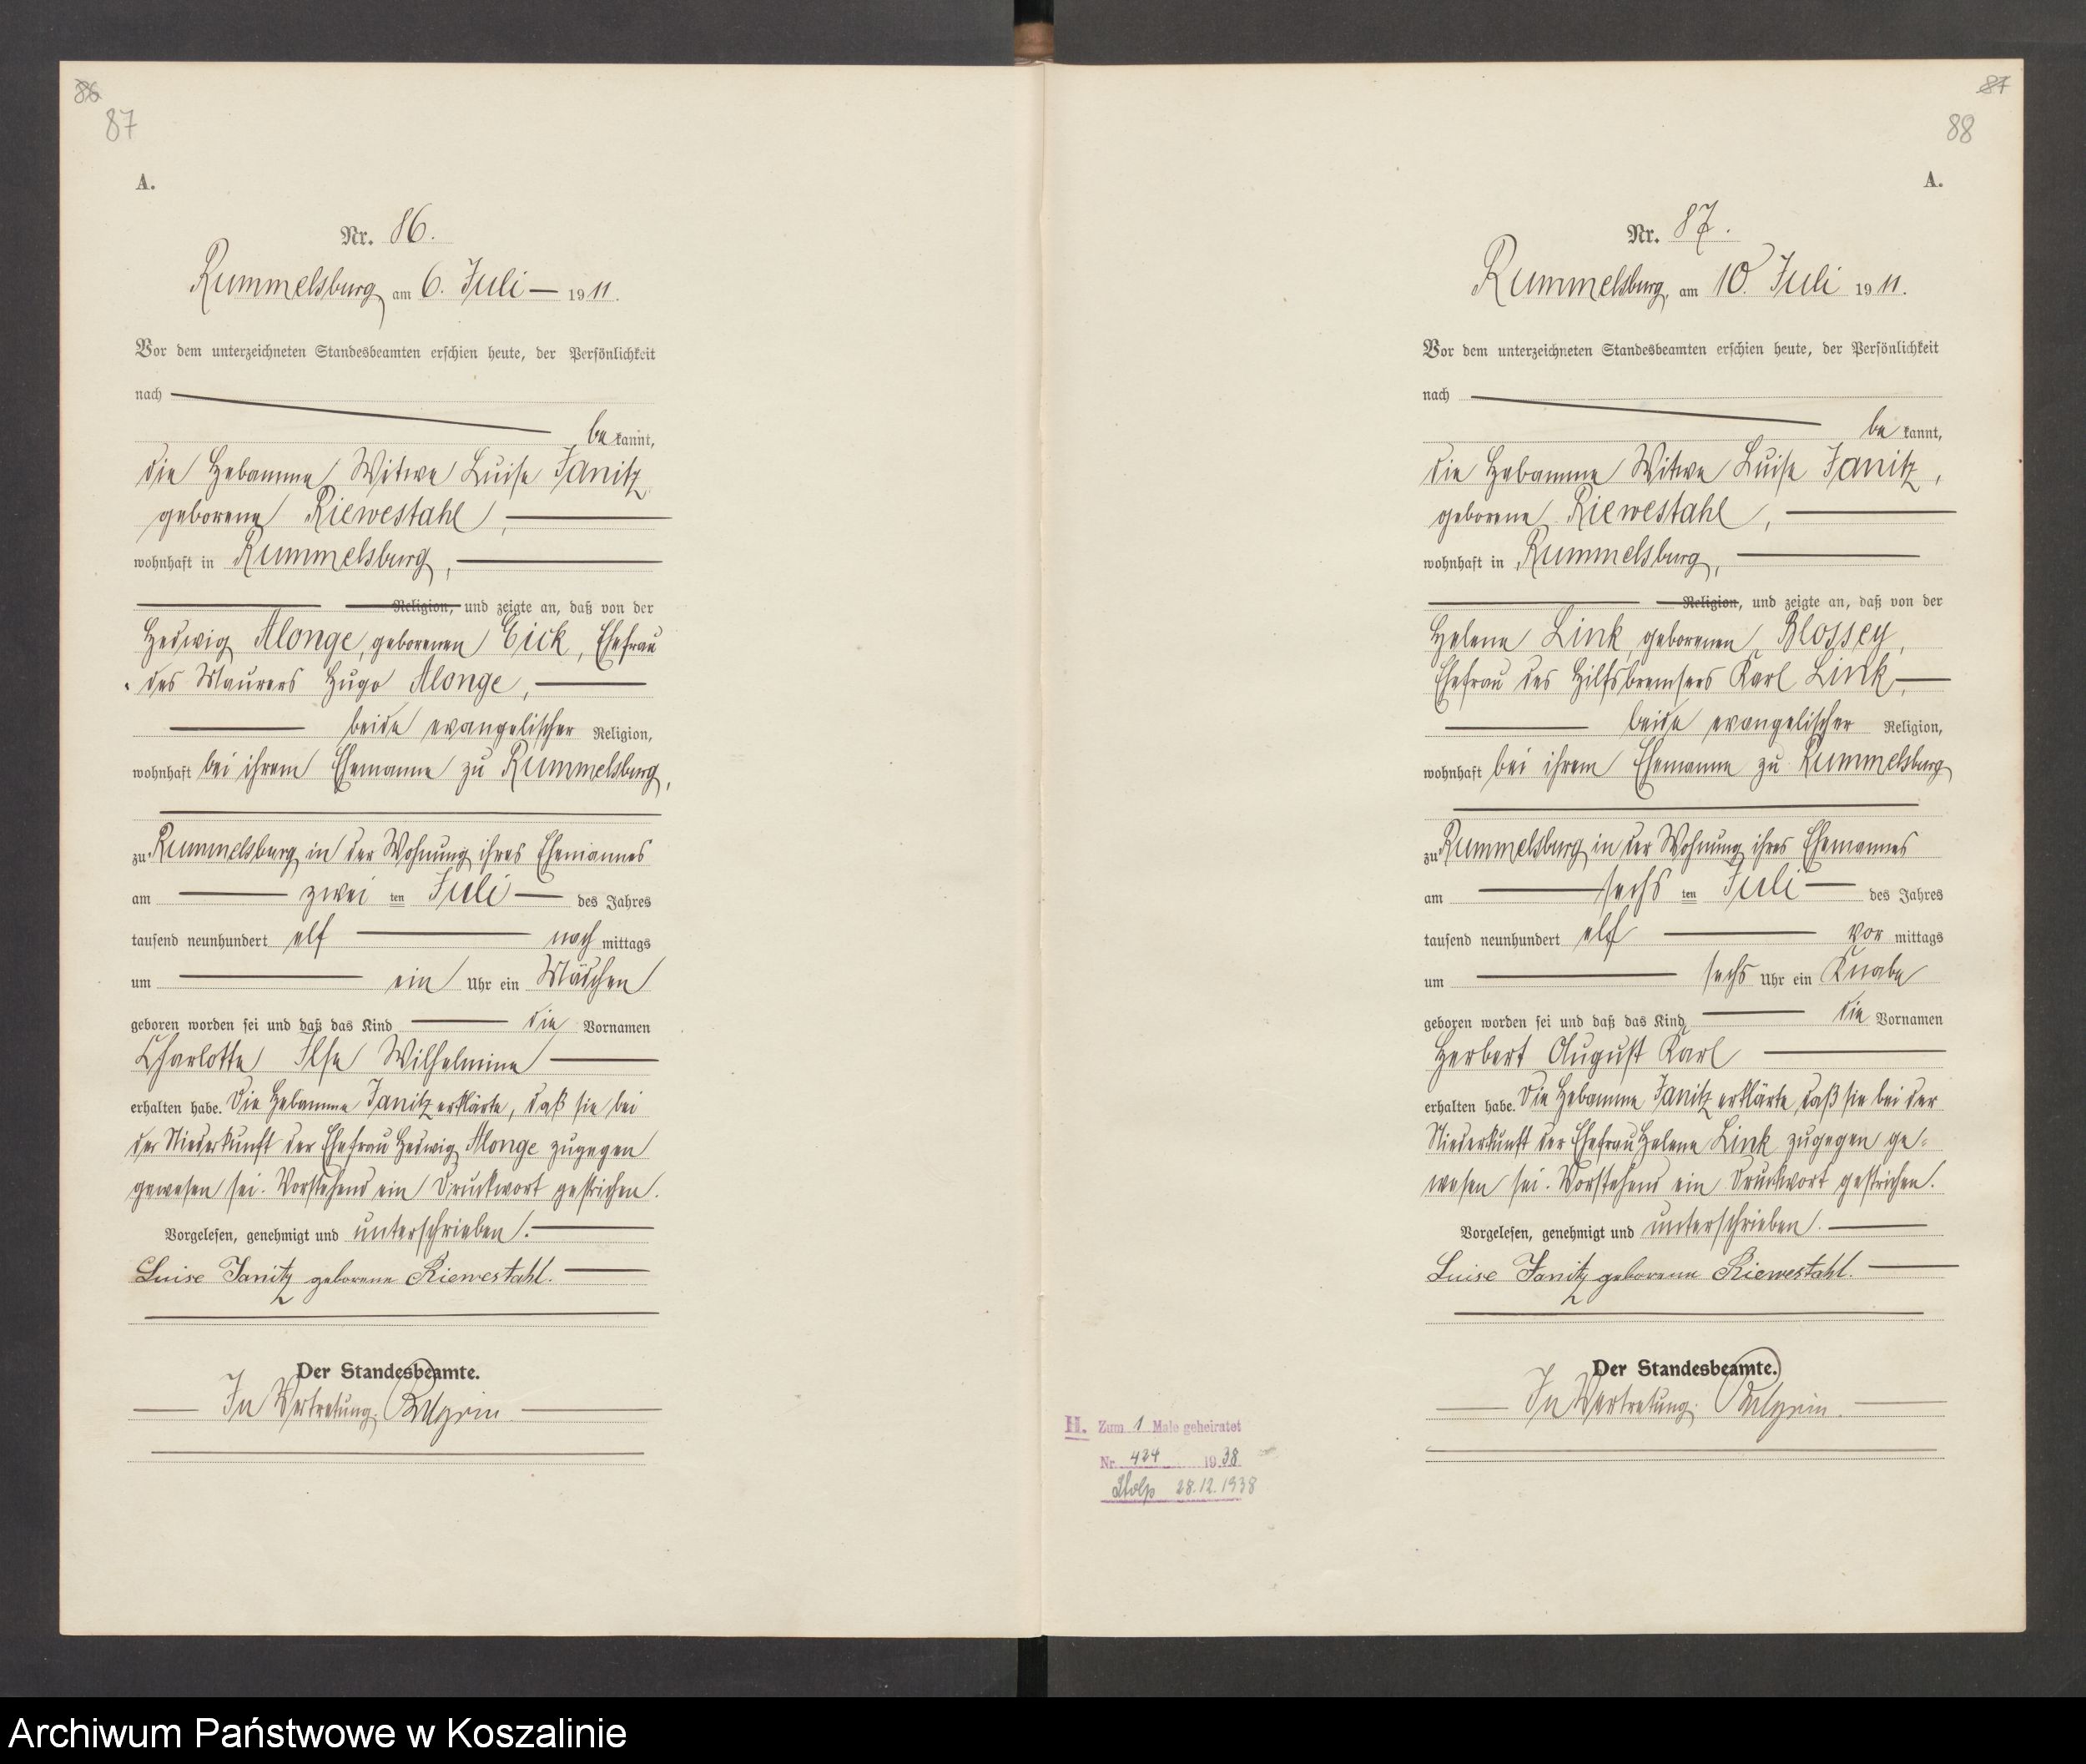 86
87
A.
Nr. 86.
Rummelsburg am 6. Juli 1911.
Vor dem unterzeichneten Standesbeamten erschien heute, der Persönlichkeit
nach
bekannt,
die Hebamme Witwe Luise Janitz,
geborene Riewestahl,
wohnhaft in Rummelsburg,
Religion, und zeigte an, daß von der
Hedwig Alonge, geborenen Eick, Ehefrau
des Maurers Hugo Alonge,
beide evangelischer Religion,
wohnhaft bei ihrem Ehemanne zu Rummelsburg,
zu Rummelsburg in der Wohnung ihres Ehemannes
am zweiten Juli des Jahres
tausend neunhundert elf nachmittags
um ein Uhr ein Mädchen
geboren worden sei und daß das Kind die Vornamen
Charlotte Ilse Wilhelmine
erhalten habe. Die Hebamme Janitz erklärte, daß sie bei
der Niederkunft der Ehefrau Hedwig Alonge zugegen
gewesen sei. Vorstehend ein Druckwort gestrichen.
Vorgelesen, genehmigt und unterschrieben.
Luise Janitz geborene Riewestahl.
Der Standesbeamte.
In Vertretung.
87
88
A.
Nr. 87.
Rummelsburg, am 10. Juli 1911.
Vor dem unterzeichneten Standesbeamten erschien heute, der Persönlichkeit
nach
bekannt,
die Hebamme Witwe Luise Janitz,
geborene Riewestahl,
wohnhaft in Rummelsburg,
Religion, und zeigte an, daß von der
Helene Link, geborenen Blossey,
Ehefrau des Hilfsbremsers Karl Link,
beide evangelischer Religion,
wohnhaft bei ihrem Ehemanne zu Rummelsburg
zu Rummelsburg in der Wohnung ihres Ehemannes
am sechsten Juli des Jahres
tausend neunhundert elf vormittags
um sechs Uhr ein Knabe
geboren worden sei und daß das Kind die Vornamen
Herbert August Karl
erhalten habe. Die Hebamme Janitz erklärte, daß sie bei der
Niederkunft der Ehefrau Helene Link zugegen ge-
wesen sei. Vorstehend ein Druckwort gestrichen.
Vorgelesen, genehmigt und unterschrieben.
Luise Janitz geborene Riewestahl.
Der Standesbeamte.
In Vertretung.
H. Zum 1 Male geheiratet
Nr. 424 1938
Stolp 28.12.1938
Archiwum Państwowe w Koszalinie